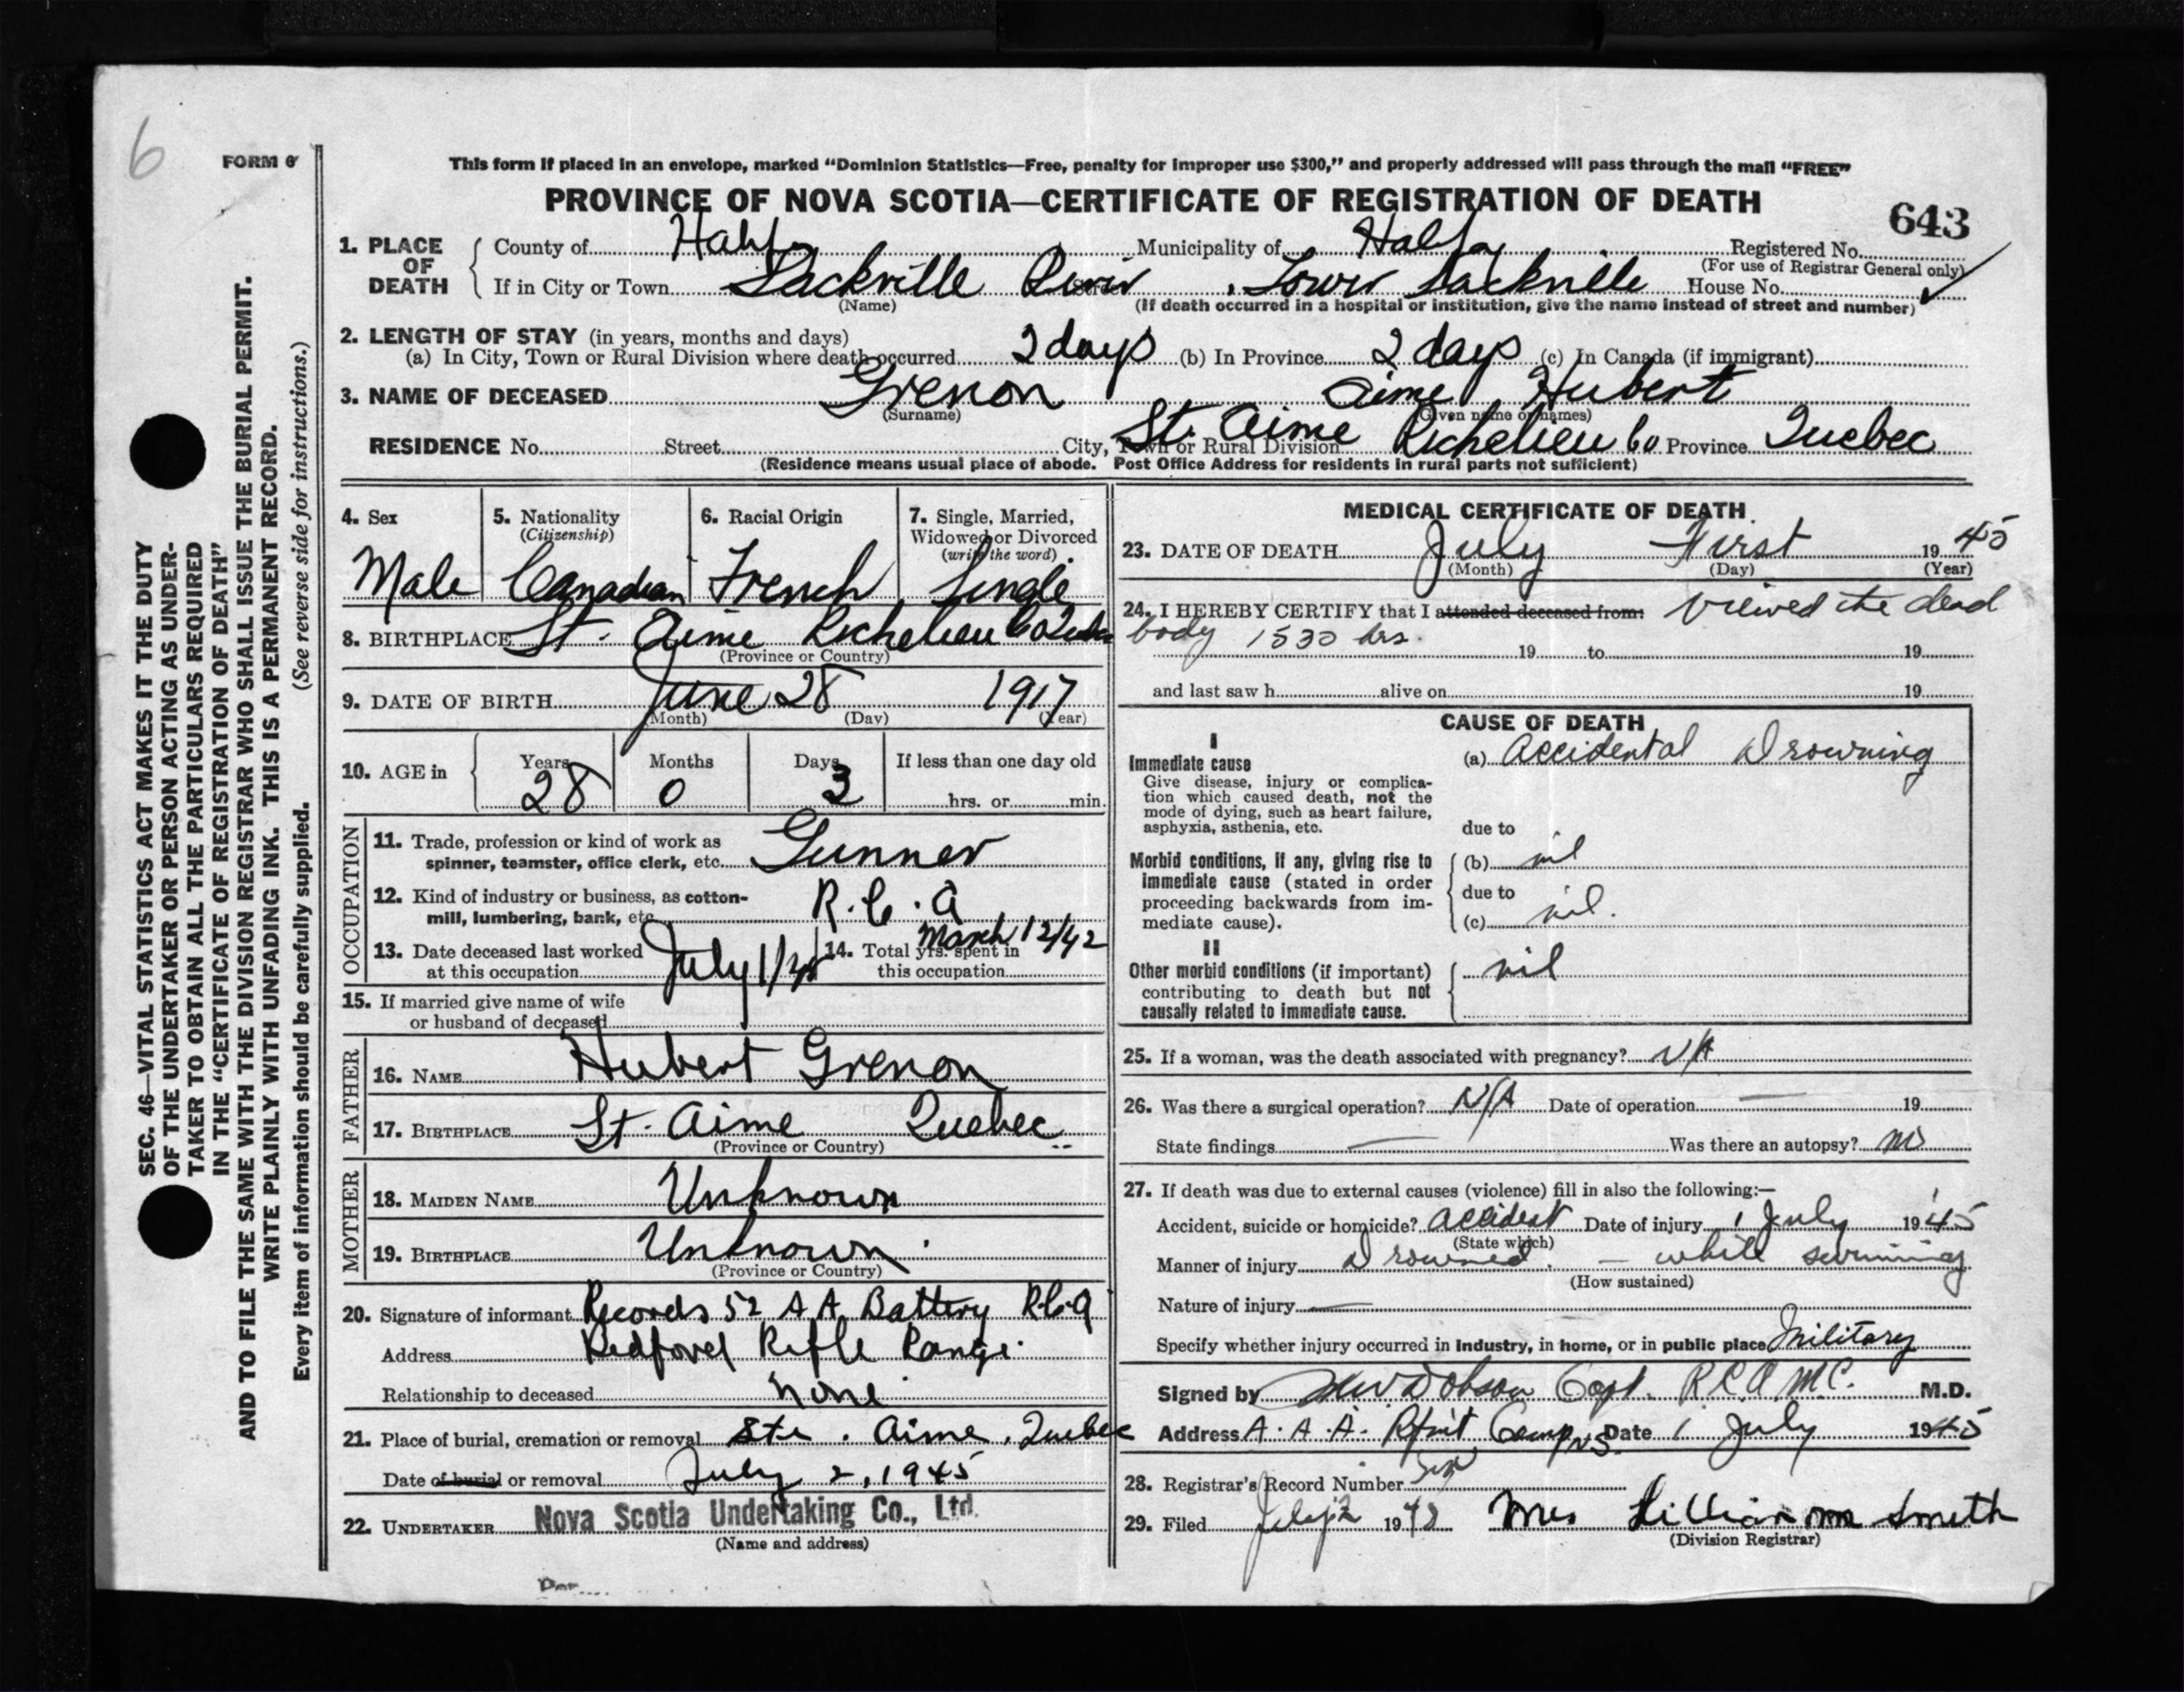 6
FORM 6
This form if placed in an envelope, marked "Dominion Statistics—Free, penalty for improper use $300," and properly addressed will pass through the mail "FREE"
PROVINCE OF NOVA SCOTIA—CERTIFICATE OF REGISTRATION OF DEATH
643
1. PLACE OF DEATH
County of Halifax Municipality of Halifax Registered No.
(For use of Registrar General only)
If in City or Town Sackville River Street, Lower Sackville House No.
(Name) (If death occurred in a hospital or institution, give the name instead of street and number)
2. LENGTH OF STAY (in years, months and days)
(a) In City, Town or Rural Division where death occurred 2 days (b) In Province 2 days (c) In Canada (if immigrant)
3. NAME OF DECEASED Grenon Aime Hubert
(Surname) (Given name or names)
RESIDENCE No. Street City, Town or Rural Division St. Aime Richelieu Co Province Quebec
(Residence means usual place of abode. Post Office Address for residents in rural parts not sufficient)
4. Sex
Male
5. Nationality
(Citizenship)
Canadian
6. Racial Origin
French
7. Single, Married,
Widowed or Divorced
(write the word)
Single
8. BIRTHPLACE St. Aime Richelieu Co Quebec
(Province or Country)
9. DATE OF BIRTH June 28 1917
(Month) (Day) (Year)
10. AGE in
Years Months Days If less than one day old
28 0 3 hrs. or min.
OCCUPATION
11. Trade, profession or kind of work as
spinner, teamster, office clerk, etc. Gunner
12. Kind of industry or business, as cotton-
mill, lumbering, bank, etc. R.C.A
13. Date deceased last worked
at this occupation July 1/45
14. Total yrs. spent in
this occupation March 12/42
15. If married give name of wife
or husband of deceased
FATHER
16. NAME Hubert Grenon
17. BIRTHPLACE St. Aime Quebec
(Province or Country)
MOTHER
18. MAIDEN NAME Unknown
19. BIRTHPLACE Unknown
(Province or Country)
20. Signature of informant Records 52 A A Battery R.C.A
Address Bedford Rifle Range
Relationship to deceased none
21. Place of burial, cremation or removal Ste. Aime, Quebec
Date of burial or removal July 2, 1945
22. UNDERTAKER Nova Scotia Undertaking Co., Ltd.
(Name and address)
Per....
MEDICAL CERTIFICATE OF DEATH
23. DATE OF DEATH July First 1945
(Month) (Day) (Year)
24. I HEREBY CERTIFY that I attended deceased from: viewed the dead
body 1530 hrs. 19 to 19
and last saw h alive on 19
CAUSE OF DEATH
I
Immediate cause
Give disease, injury or complica-
tion which caused death, not the
mode of dying, such as heart failure,
asphyxia, asthenia, etc.
(a) Accidental Drowning
due to
Morbid conditions, if any, giving rise to
immediate cause (stated in order
proceeding backwards from im-
mediate cause).
(b) nil
due to
(c) nil.
II
Other morbid conditions (if important)
contributing to death but not
causally related to immediate cause.
nil
25. If a woman, was the death associated with pregnancy? N/A
26. Was there a surgical operation? N/A Date of operation — 19
State findings — Was there an autopsy? no
27. If death was due to external causes (violence) fill in also the following:—
Accident, suicide or homicide? accident Date of injury 1 July 1945
(State which)
Manner of injury Drowned. — while swimming
(How sustained)
Nature of injury —
Specify whether injury occurred in industry, in home, or in public place Military
Signed by Dobson Capt. R.C.A.M.C. M.D.
Address A.A.A. Camp NS Date 1 July 1945
28. Registrar's Record Number
29. Filed July 2 19 Mrs Lillian M Smith
(Division Registrar)
SEC. 46—VITAL STATISTICS ACT MAKES IT THE DUTY
OF THE UNDERTAKER OR PERSON ACTING AS UNDER-
TAKER TO OBTAIN ALL THE PARTICULARS REQUIRED
IN THE "CERTIFICATE OF REGISTRATION OF DEATH"
AND TO FILE THE SAME WITH THE DIVISION REGISTRAR WHO SHALL ISSUE THE BURIAL PERMIT.
WRITE PLAINLY WITH UNFADING INK. THIS IS A PERMANENT RECORD.
Every item of information should be carefully supplied. (See reverse side for instructions.)